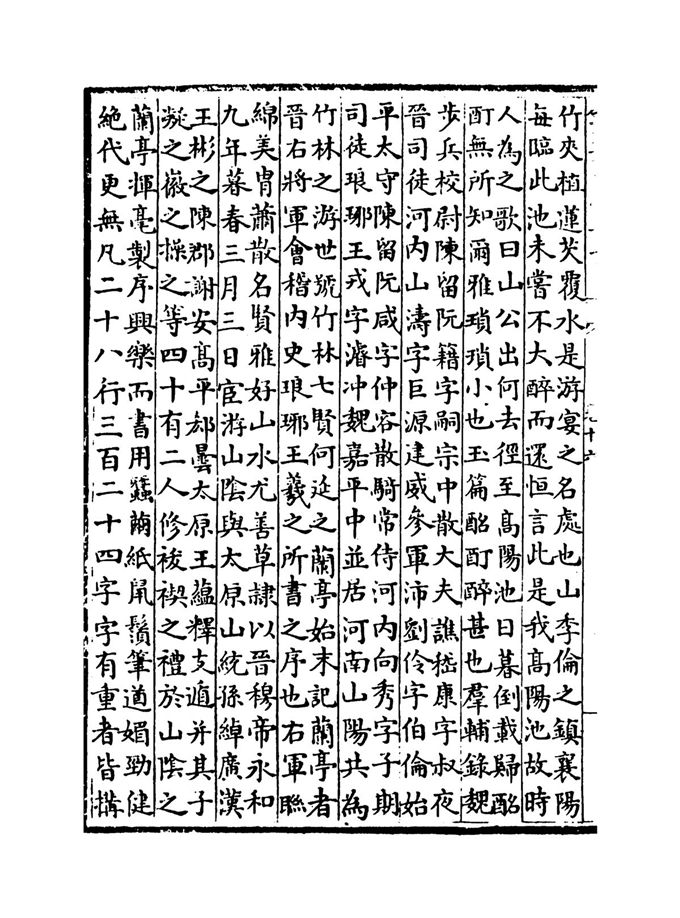 竹夾植蓮芡覆水是游宴之名處也山季倫之鎮襄陽
每臨此池未嘗不大醉而還恒言此是我高陽池故時
人為之歌曰山公出何去徑至高陽池日暮倒載歸酩
酊無所知爾雅瑣瑣小也玉篇酩酊醉甚也羣輔錄魏
步兵校尉陳留阮籍字嗣宗中散大夫譙嵇康字叔夜
晉司徒河内山濤字巨源建威參軍沛劉伶字伯倫始
平太守陳留阮咸字仲容散騎常侍河内向秀字子期
司徒琅琊王戎字濬冲魏嘉平中並居河南山陽共為
竹林之游世號竹林七賢何延之蘭亭始末記蘭亭者
晉右將軍會稽内史琅琊王羲之所書之序也右軍聮
綿美胄蕭散名賢雅好山水尤善草隸以晉穆帝永和
九年暮春三月三日宦游山陰與太原山統孫綽廣漢
王彬之陳郡謝安高平郗曇太原王藴釋支遁并其子
凝之徽之操之等四十有二人修祓禊之禮於山陰之
蘭亭揮毫製序興樂而書用蠶繭紙鼠鬚筆遒媚勁健
絶代更無凡二十八行三百二十四字字有重者皆搆